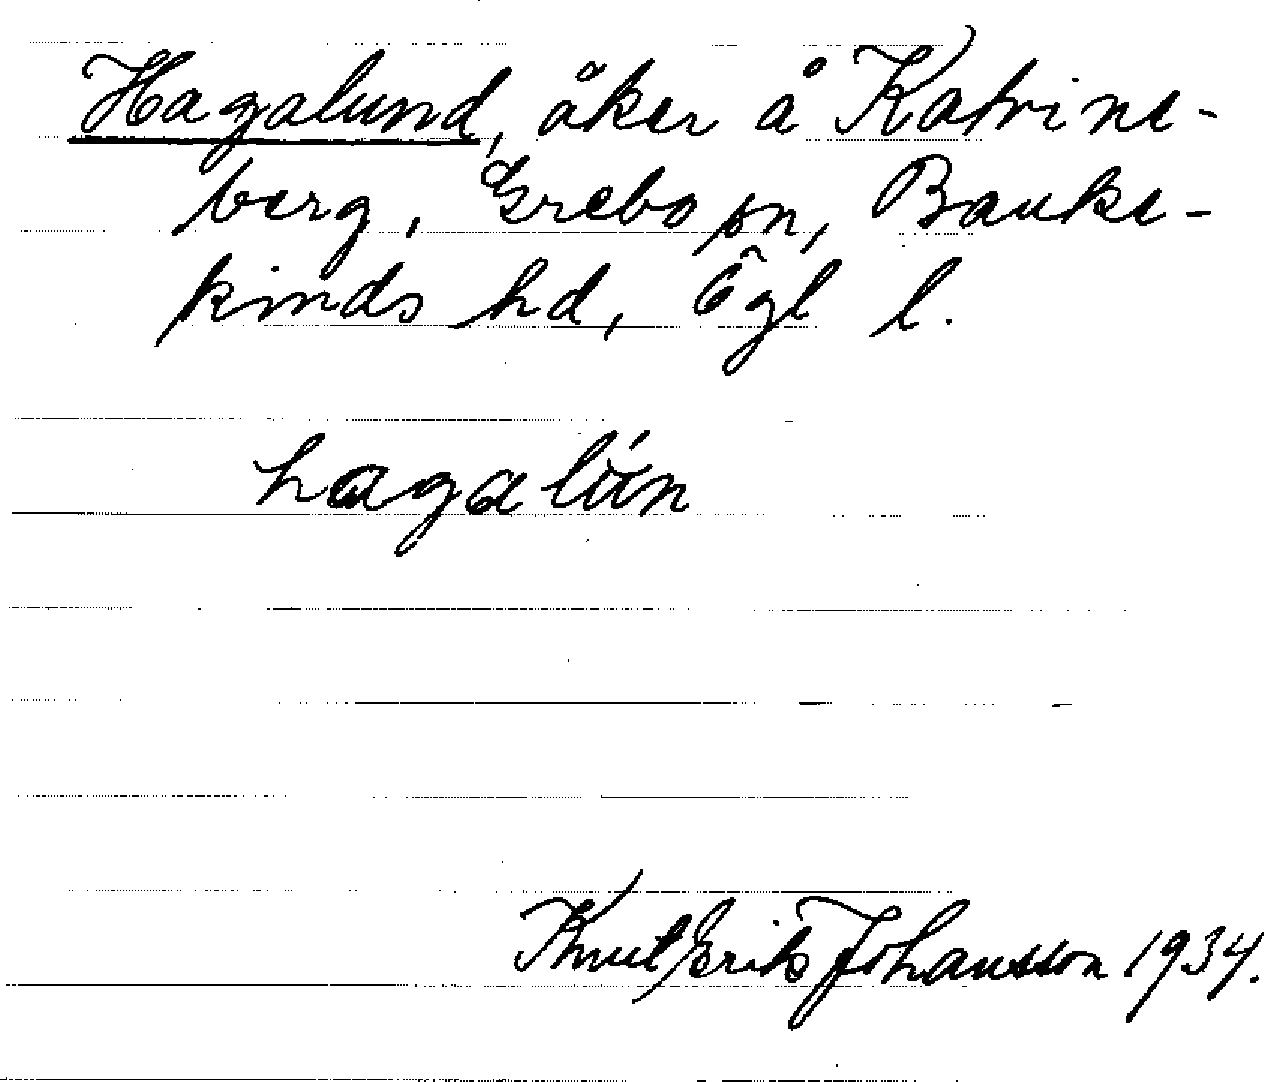 Hagalund, åker å Katrine-
berg, Grebo sn, Banke-
kinds hd, Ögl l.
Knut Erik Johansson 1934.